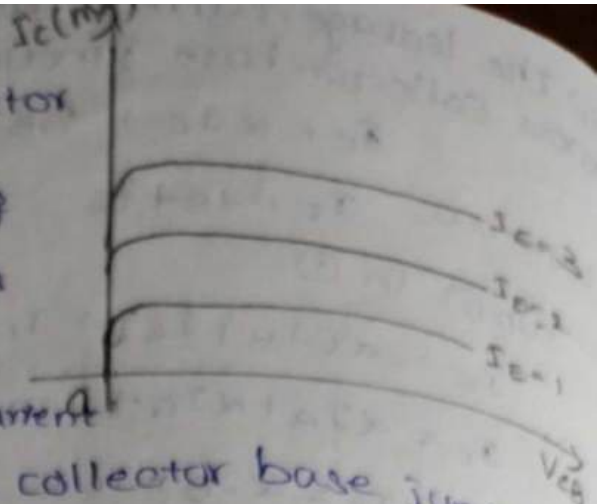 Ic (m
tor
IE=3
IE=2
IE=1
urrent
VCB
collector base